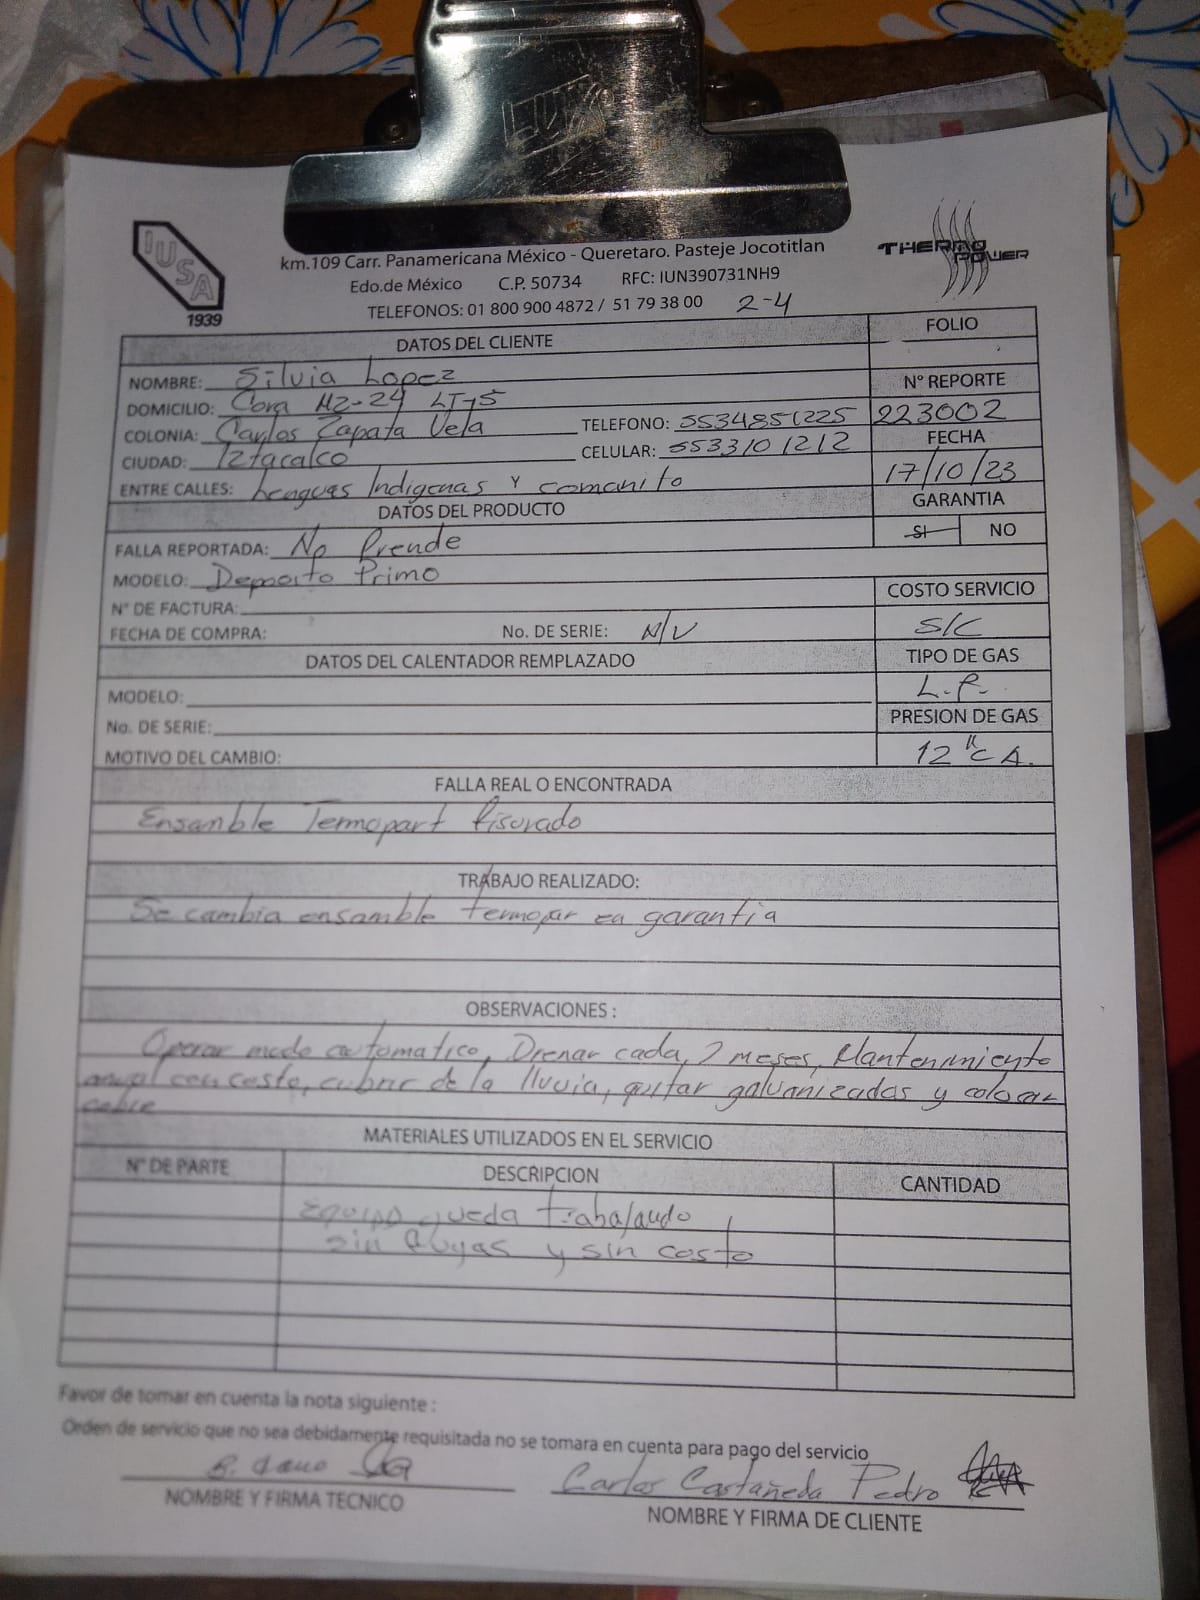 IUSA
1939
km.109 Carr. Panamericana México - Queretaro. Pasteje Jocotitlan
Edo.de México C.P. 50734 RFC: IUN390731NH9
TELEFONOS: 01 800 900 4872 / 51 79 38 00 2-4
THERMO POWER
DATOS DEL CLIENTE
FOLIO
NOMBRE: Silvia Lopez
Nº REPORTE
DOMICILIO: Cora Mz-24 LT-5
COLONIA: Carlos Zapata Vela TELEFONO: 5534851225 223002
CIUDAD: Iztacalco CELULAR: 5533101212
FECHA
ENTRE CALLES: Lenguas Indigenas Y comanito 17/10/23
DATOS DEL PRODUCTO
GARANTIA
SI NO
FALLA REPORTADA: No Prende
MODELO: Deposito Primo
COSTO SERVICIO
Nº DE FACTURA:
FECHA DE COMPRA: No. DE SERIE: N/V S/C
DATOS DEL CALENTADOR REMPLAZADO
TIPO DE GAS
MODELO: L.P.
No. DE SERIE:
PRESION DE GAS
MOTIVO DEL CAMBIO: 12 "C A.
FALLA REAL O ENCONTRADA
Ensamble Termopart fisurado
TRABAJO REALIZADO:
Se cambia ensamble termopar en garantia
OBSERVACIONES :
Operar modo automatico, Drenar cada, 2 meses, Mantenimiento
anual con costo, cubrir de la lluvia, quitar galvanizados y colocar
cobre
MATERIALES UTILIZADOS EN EL SERVICIO
Nº DE PARTE DESCRIPCION CANTIDAD
Equipo queda trabajando
sin fugas y sin costo
Favor de tomar en cuenta la nota siguiente :
Orden de servicio que no sea debidamente requisitada no se tomara en cuenta para pago del servicio
Carlos Castañeda Pedro
NOMBRE Y FIRMA TECNICO
NOMBRE Y FIRMA DE CLIENTE